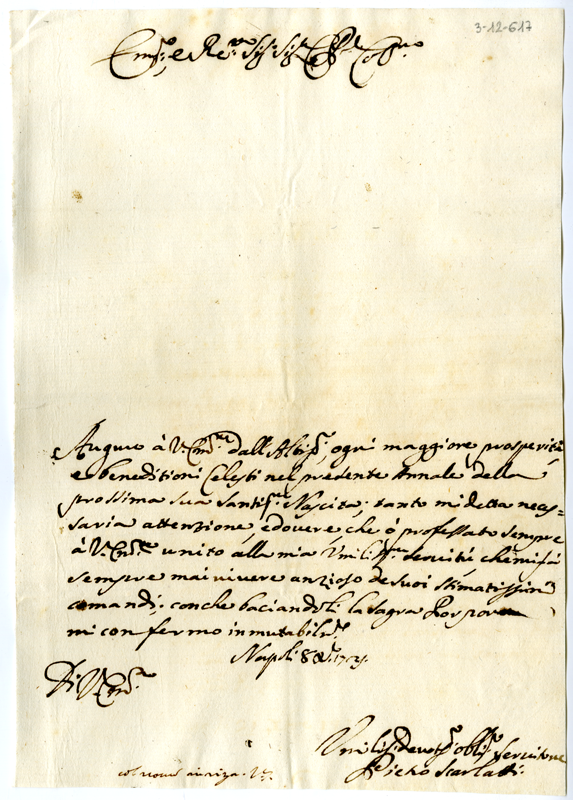 3-12-617
Em.mo e Re.mo Sig.r Sig.r P.ron Col.mo
Auguro à V. Em.za dall'Altis.mo, ogni maggiore prosperità
e beneditioni Celesti nel presente Annale della
prossima sua Santis.ma Nascita; tanto mi detta neces=
saria attenzione, e dovere, che ò professato sempre
à V. Em.za unito alla mia Vmilis.ma servitù che mi fà
sempre mai vivere anzioso de suoi stimatissimi
comandi. con che baciandoli la sagra Porpora
mi confermo inmutabilm.te
Napoli 8
Di V. Em.za
Vmilis. Devotis.mo oblig.mo Servitore
Pietro Scarlatti